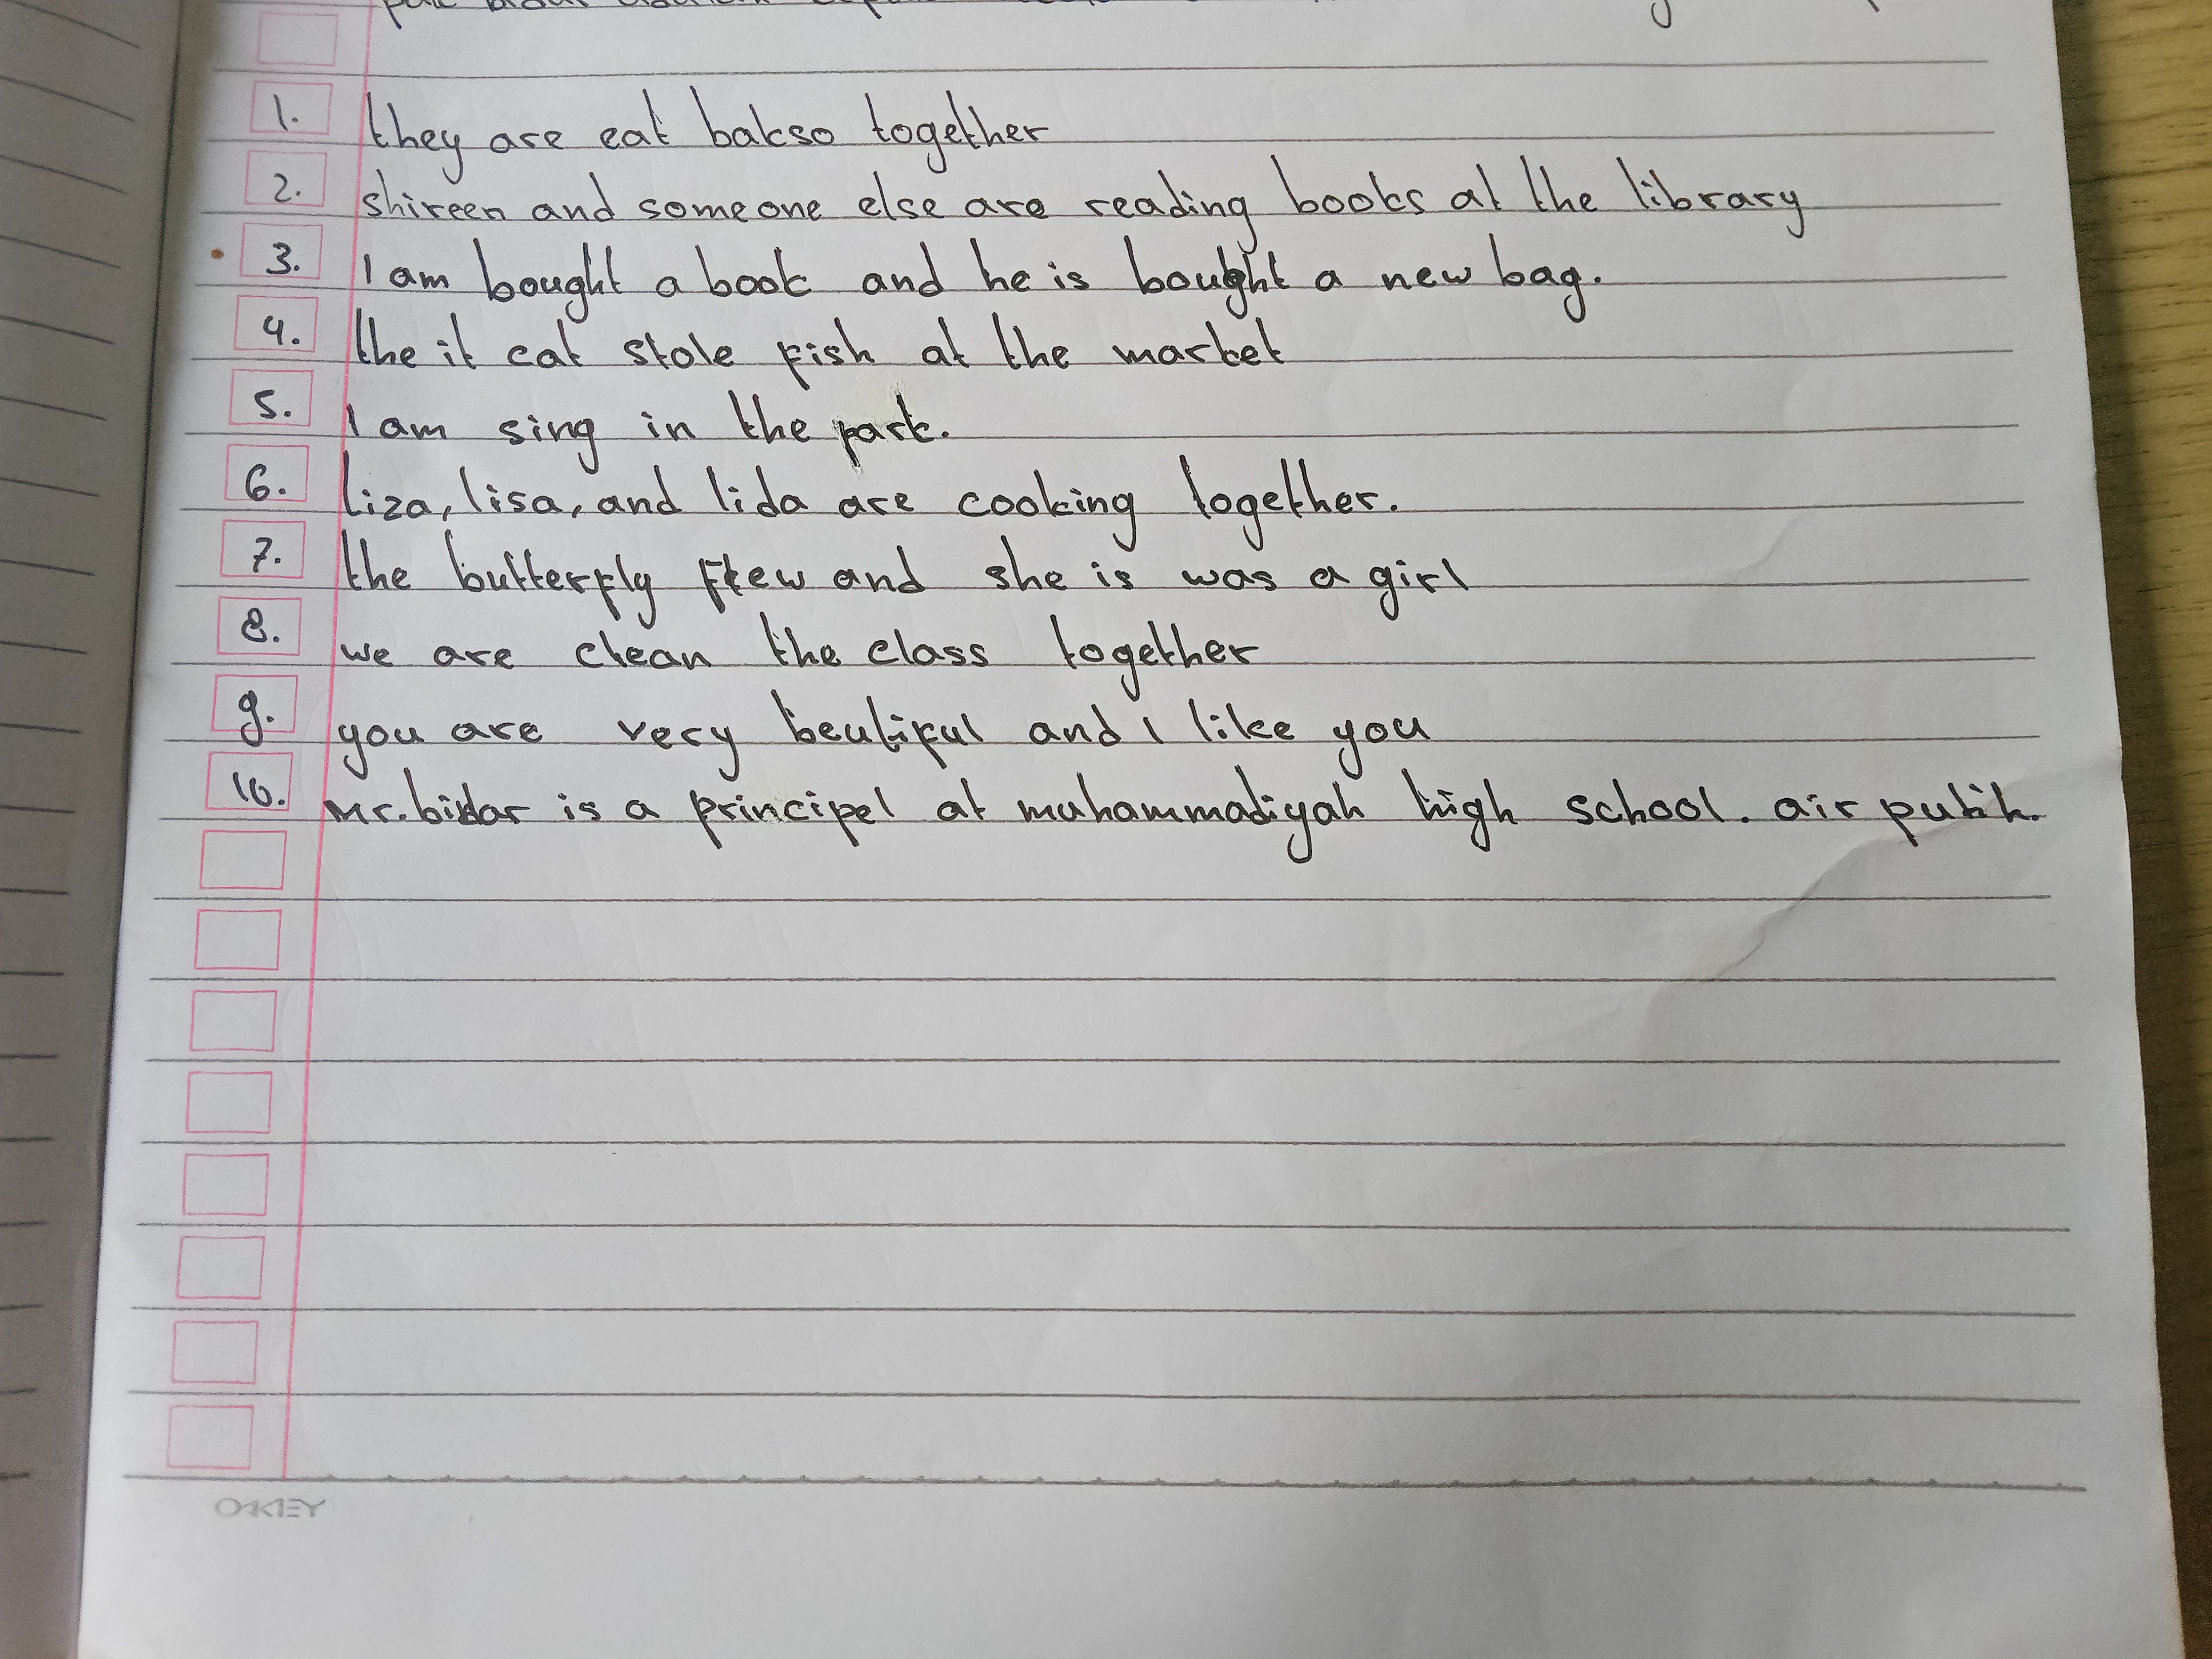 1. they are eat bakso together
2. shireen and someone else are reading books at the library
3. I am bought a book and he is bought a new bag.
4. the it cat stole fish at the market
5. I am sing in the park.
6. liza, lisa, and lida are cooking together.
7. the butterfly flew and she is was a girl
8. we are clean the class together
9. you are very beutiful and I like you
10. Mr. bidar is a principel at muhammadiyah high school. air putih.
OAKEY